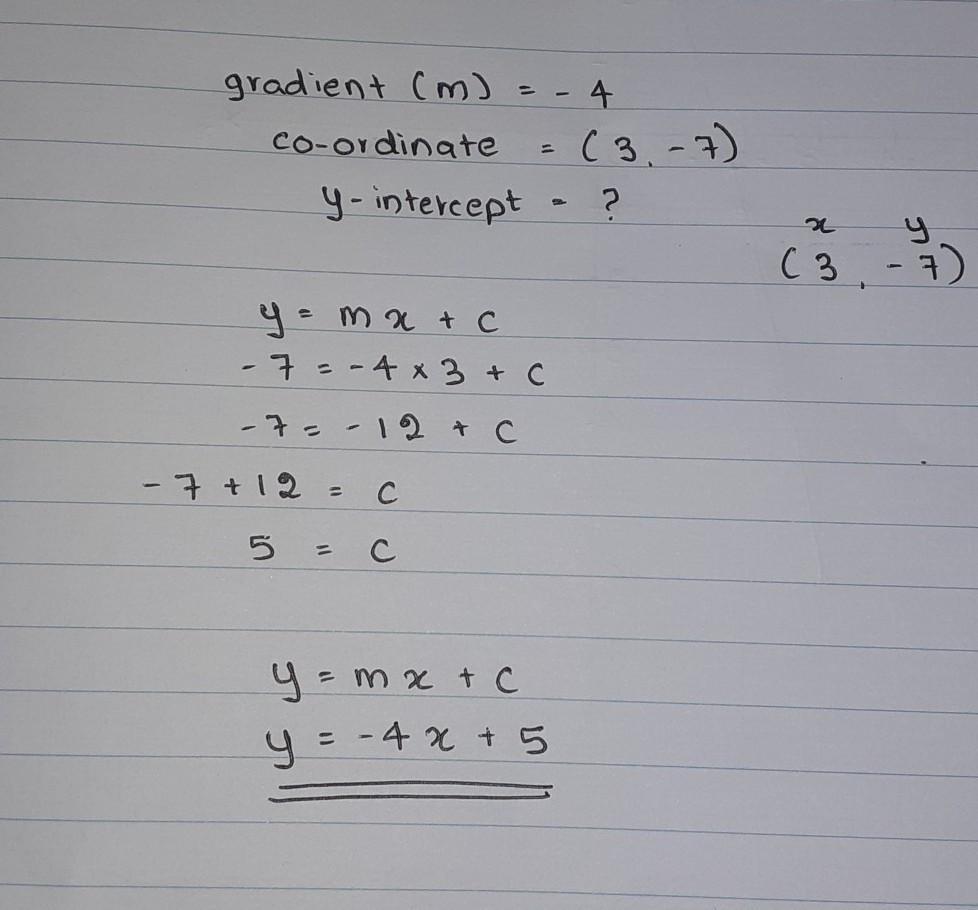 gradient (m) = - 4
co-ordinate = (3, -7)
y-intercept = ?
x y
(3, -7)
y = mx + c
-7 = -4 × 3 + c
-7 = -12 + c
-7 + 12 = c
5 = c
y = mx + c
y = -4x + 5